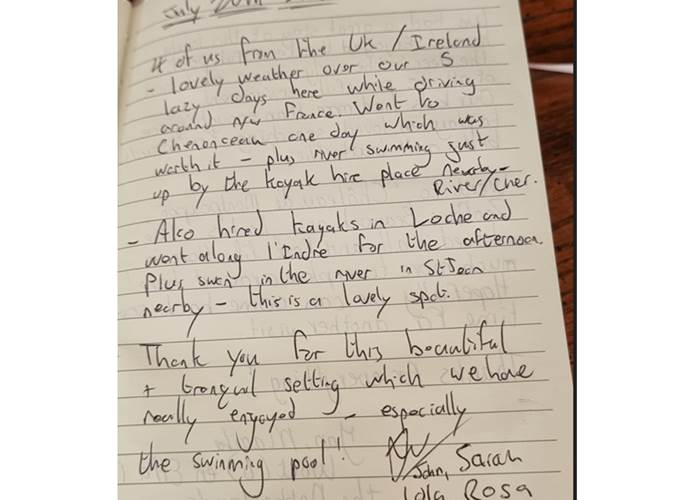 July
4 of us from the UK / Ireland
- lovely weather over our 5
lazy days here while driving
around NW France. Went to
Chenonceau one day which was
worth it - plus river swimming just
up by the kayak hire place nearby -
River/Cher.
- Also hired kayaks in Loche and
went along l'Indre for the afternoon.
Plus swim in the river in St Jean
nearby - this is a lovely spot.
Thank you for this beautiful
+ tranquil setting which we have
really enjoyed - especially
the swimming pool!
John, Sarah
Lola Rosa